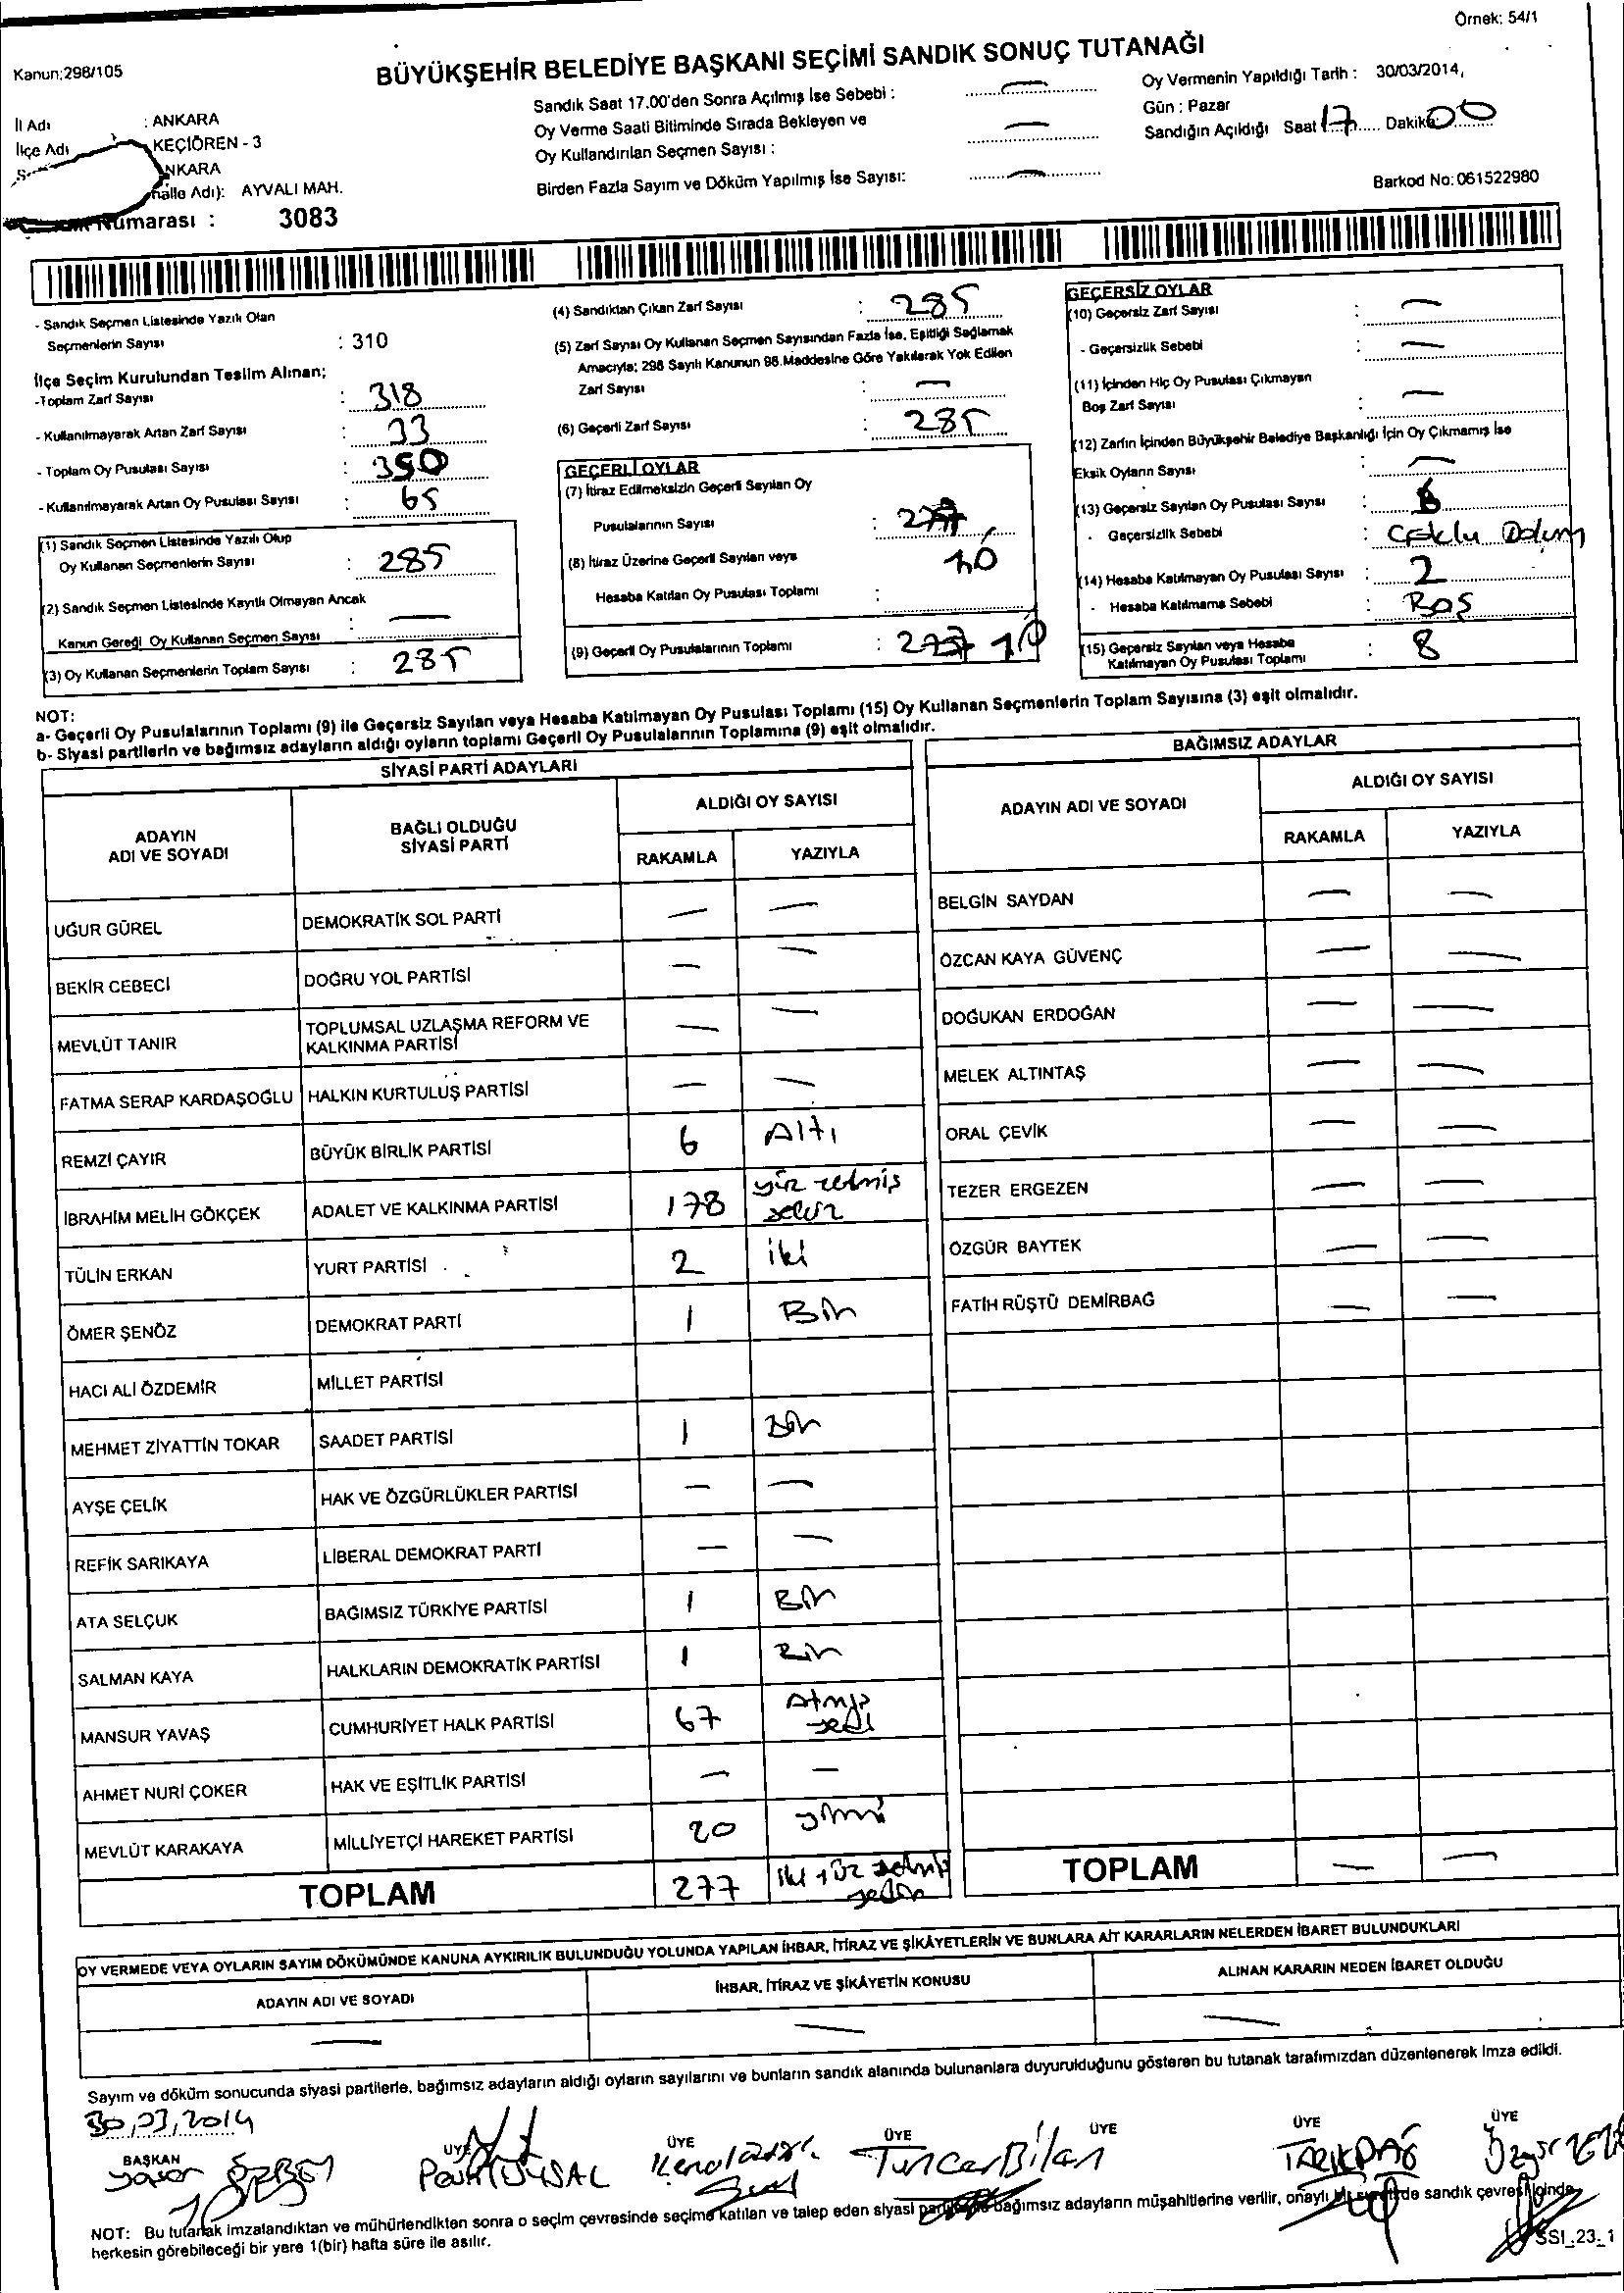 Örnek: 54/1
Kanun:298/105
BÜYÜKŞEHİR BELEDİYE BAŞKANI SEÇİMİ SANDIK SONUÇ TUTANAĞI
İl Adı : ANKARA
İlçe Adı KEÇİÖREN - 3
ANKARA
halle Adı): AYVALI MAH.
Numarası : 3083
Sandık Saat 17.00'den Sonra Açılmış İse Sebebi : —
Oy Verme Saati Bitiminde Sırada Bekleyen ve
Oy Kullandırılan Seçmen Sayısı : —
Birden Fazla Sayım ve Döküm Yapılmış İse Sayısı: —
Oy Vermenin Yapıldığı Tarih : 30/03/2014,
Gün : Pazar
Sandığın Açıldığı Saat 17 Dakika 00
Barkod No: 061522980
- Sandık Seçmen Listesinde Yazılı Olan
Seçmenlerin Sayısı : 310
İlçe Seçim Kurulundan Teslim Alınan;
-Toplam Zarf Sayısı : 318
- Kullanılmayarak Artan Zarf Sayısı : 33
- Toplam Oy Pusulası Sayısı : 350
- Kullanılmayarak Artan Oy Pusulası Sayısı : 65
(1) Sandık Seçmen Listesinde Yazılı Olup
Oy Kullanan Seçmenlerin Sayısı : 285
(2) Sandık Seçmen Listesinde Kayıtlı Olmayan Ancak
Kanun Gereği Oy Kullanan Seçmen Sayısı : —
(3) Oy Kullanan Seçmenlerin Toplam Sayısı : 285
(4) Sandıktan Çıkan Zarf Sayısı : 285
(5) Zarf Sayısı Oy Kullanan Seçmen Sayısından Fazla İse, Eşitliği Sağlamak
Amacıyla; 298 Sayılı Kanunun 98.Maddesine Göre Yakılarak Yok Edilen
Zarf Sayısı : —
(6) Geçerli Zarf Sayısı : 285
GEÇERLİ OYLAR
(7) İtiraz Edilmeksizin Geçerli Sayılan Oy
Pusulalarının Sayısı : 277
(8) İtiraz Üzerine Geçerli Sayılan veya
Hesaba Katılan Oy Pusulası Toplamı :
(9) Geçerli Oy Pusulalarının Toplamı : 277
GEÇERSİZ OYLAR
(10) Geçersiz Zarf Sayısı : —
- Geçersizlik Sebebi : —
(11) İçinden Hiç Oy Pusulası Çıkmayan
Boş Zarf Sayısı : —
(12) Zarfın İçinden Büyükşehir Belediye Başkanlığı İçin Oy Çıkmamış İse
Eksik Oyların Sayısı : —
(13) Geçersiz Sayılan Oy Pusulası Sayısı : 6
- Geçersizlik Sebebi :
(14) Hesaba Katılmayan Oy Pusulası Sayısı : 2
- Hesaba Katılmama Sebebi : Boş
(15) Geçersiz Sayılan veya Hesaba
Katılmayan Oy Pusulası Toplamı : 8
NOT:
a- Geçerli Oy Pusulalarının Toplamı (9) ile Geçersiz Sayılan veya Hesaba Katılmayan Oy Pusulası Toplamı (15) Oy Kullanan Seçmenlerin Toplam Sayısına (3) eşit olmalıdır.
b- Siyasi partilerin ve bağımsız adayların aldığı oyların toplamı Geçerli Oy Pusulalarının Toplamına (9) eşit olmalıdır.
SİYASİ PARTİ ADAYLARI
ADAYIN ADI VE SOYADI BAĞLI OLDUĞU SİYASİ PARTİ ALDIĞI OY SAYISI
RAKAMLA YAZIYLA
UĞUR GÜREL DEMOKRATİK SOL PARTİ — —
BEKİR CEBECİ DOĞRU YOL PARTİSİ — —
MEVLÜT TANIR TOPLUMSAL UZLAŞMA REFORM VE KALKINMA PARTİSİ — —
FATMA SERAP KARDAŞOĞLU HALKIN KURTULUŞ PARTİSİ — —
REMZİ ÇAYIR BÜYÜK BİRLİK PARTİSİ 6 Altı
İBRAHİM MELİH GÖKÇEK ADALET VE KALKINMA PARTİSİ 178 yüz yetmiş sekiz
TÜLİN ERKAN YURT PARTİSİ 2 iki
ÖMER ŞENÖZ DEMOKRAT PARTİ 1 Bir
HACI ALİ ÖZDEMİR MİLLET PARTİSİ
MEHMET ZİYATTİN TOKAR SAADET PARTİSİ 1 Bir
AYŞE ÇELİK HAK VE ÖZGÜRLÜKLER PARTİSİ — —
REFİK SARIKAYA LİBERAL DEMOKRAT PARTİ — —
ATA SELÇUK BAĞIMSIZ TÜRKİYE PARTİSİ 1 Bir
SALMAN KAYA HALKLARIN DEMOKRATİK PARTİSİ 1 Bir
MANSUR YAVAŞ CUMHURİYET HALK PARTİSİ 67 Atmış yedi
AHMET NURİ ÇOKER HAK VE EŞİTLİK PARTİSİ — —
MEVLÜT KARAKAYA MİLLİYETÇİ HAREKET PARTİSİ 20 yirmi
TOPLAM 277 iki yüz
BAĞIMSIZ ADAYLAR
ADAYIN ADI VE SOYADI ALDIĞI OY SAYISI
RAKAMLA YAZIYLA
BELGİN SAYDAN — —
ÖZCAN KAYA GÜVENÇ — —
DOĞUKAN ERDOĞAN — —
MELEK ALTINTAŞ — —
ORAL ÇEVİK — —
TEZER ERGEZEN — —
ÖZGÜR BAYTEK — —
FATİH RÜŞTÜ DEMİRBAĞ — —
TOPLAM — —
OY VERMEDE VEYA OYLARIN SAYIM DÖKÜMÜNDE KANUNA AYKIRILIK BULUNDUĞU YOLUNDA YAPILAN İHBAR, İTİRAZ VE ŞİKÂYETLERİN VE BUNLARA AİT KARARLARIN NELERDEN İBARET BULUNDUKLARI
ADAYIN ADI VE SOYADI İHBAR, İTİRAZ VE ŞİKÂYETİN KONUSU ALINAN KARARIN NEDEN İBARET OLDUĞU
— — —
Sayım ve döküm sonucunda siyasi partilerle, bağımsız adayların aldığı oyların sayılarını ve bunların sandık alanında bulunanlara duyurulduğunu gösteren bu tutanak tarafımızdan düzenlenerek imza edildi.
30,03,2014
BAŞKAN ÜYE ÜYE ÜYE ÜYE ÜYE ÜYE
Tuncer Bilan TARIK DAĞ
NOT: Bu tutanak imzalandıktan ve mühürlendikten sonra o seçim çevresinde seçime katılan ve talep eden siyasi bağımsız adayların müşahitlerine verilir, onaylı sandık çevresi içinde
herkesin görebileceği bir yere 1(bir) hafta süre ile asılır.
SSI_23_1